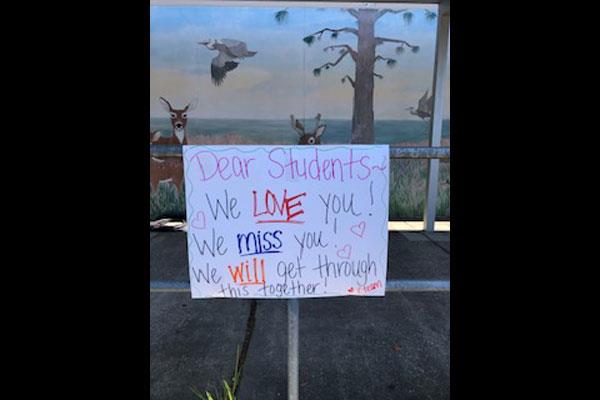 Dear Students~
We LOVE you!
We miss you!
We will get through
this together!